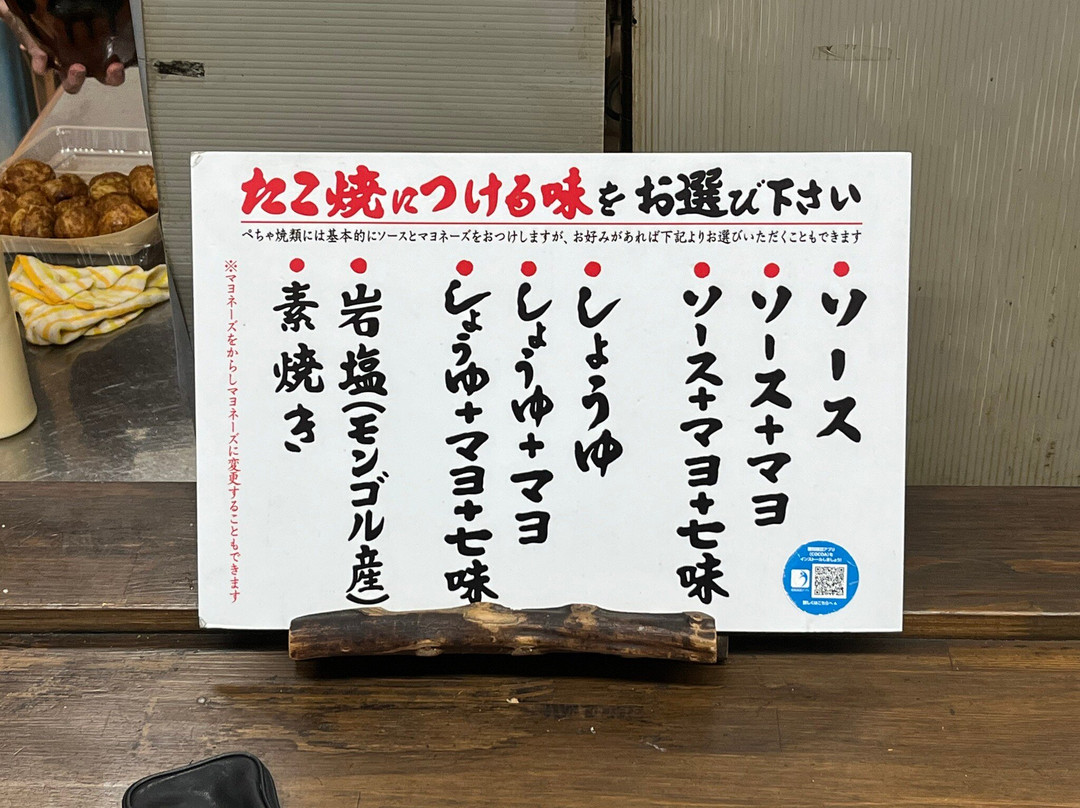 たこ焼につける味をお選び下さい
ぺちゃ焼類には基本的にソースとマヨネーズをおつけしますが、お好みがあれば下記よりお選びいただくこともできます
●ソース
●ソース+マヨ
●ソース+マヨ+七味
●しょうゆ
●しょうゆ+マヨ
●しょうゆ+マヨ+七味
●岩塩(モンゴル産)
●素焼き
※マヨネーズをからしマヨネーズに変更することもできます
(COCOA)を
インストールしましょう!
詳しくはこちらへ